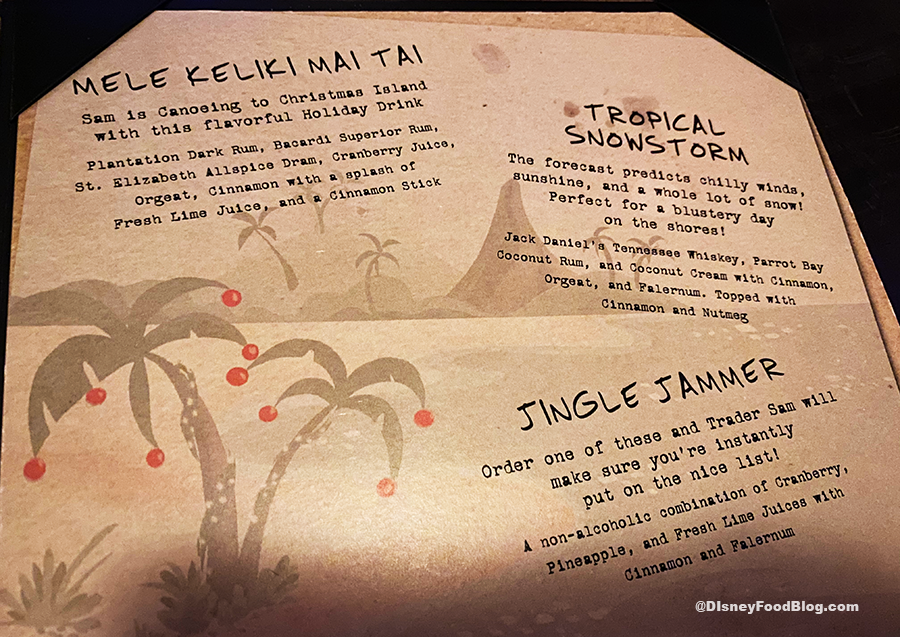 MELE KELIKI MAI TAI
Sam is Canoeing to Christmas Island
with this flavorful Holiday Drink
Plantation Dark Rum, Bacardi Superior Rum,
St. Elizabeth Allspice Dram, Cranberry Juice,
Orgeat, Cinnamon with a splash of
Fresh Lime Juice, and a Cinnamon Stick
TROPICAL
SNOWSTORM
The forecast predicts chilly winds,
sunshine, and a whole lot of snow!
Perfect for a blustery day
on the shores!
Jack Daniel's Tennessee Whiskey, Parrot Bay
Coconut Rum, and Coconut Cream with Cinnamon,
Orgeat, and Falernum. Topped with
Cinnamon and Nutmeg
JINGLE JAMMER
Order one of these and Trader Sam will
make sure you're instantly
put on the nice list!
A non-alcoholic combination of Cranberry,
Pineapple, and Fresh Lime Juices with
Cinnamon and Falernum
@DisneyFoodBlog.com